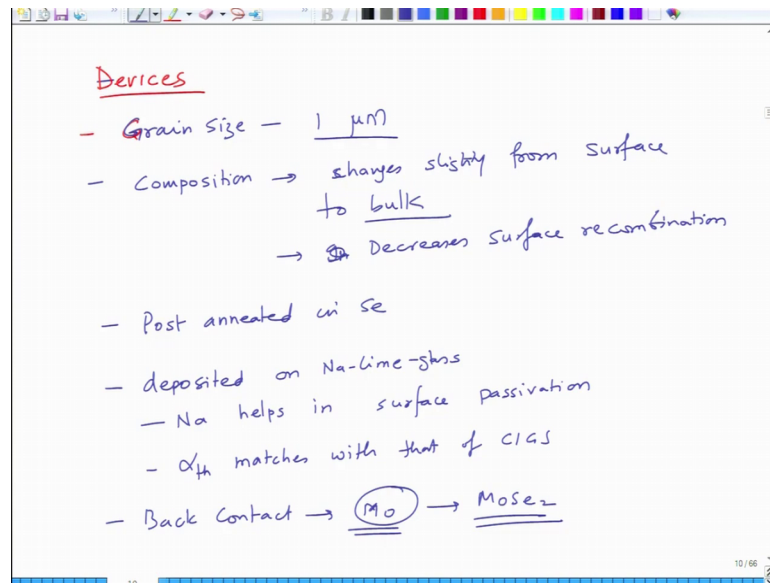 Devices
- Grain size - 1 μm
- Composition → changes slightly from surface
to bulk
→ Decreases surface recombination
- Post annealed in Se
- deposited on Na-lime-glass
- Na helps in surface passivation
- αth matches with that of CIGS
- Back Contact → Mo → MoSe2
10 / 66